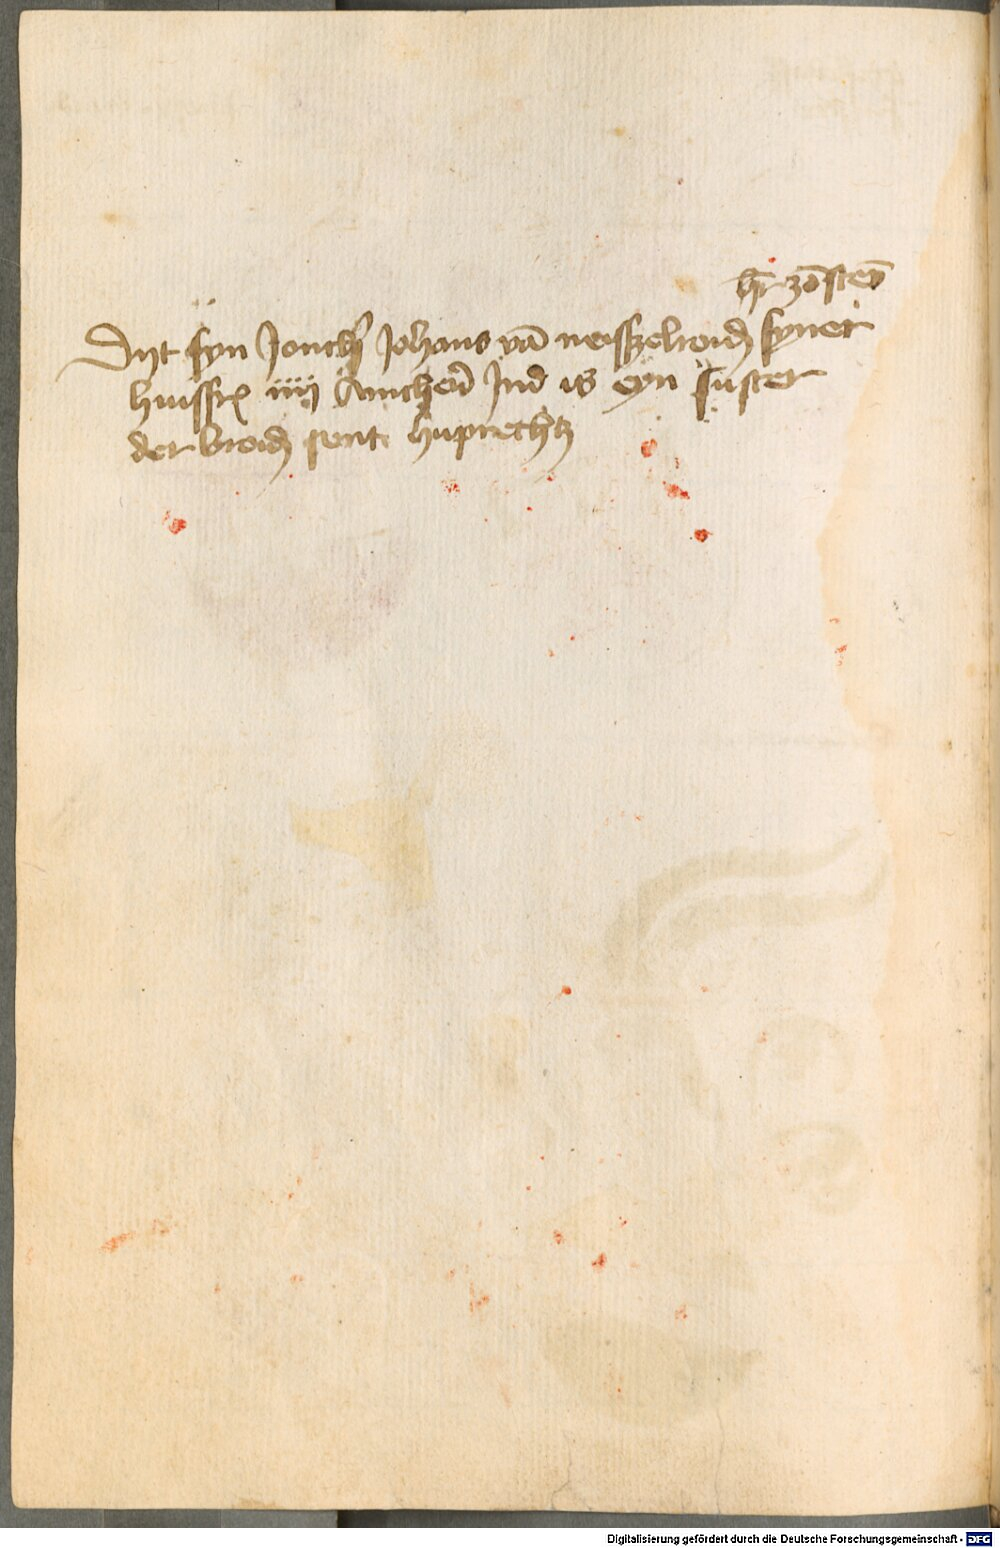 her zōsten̄
Dijt syn Jonch' Johans vā nesselroid syner
huissrͦ iiij Anchen̄ Ind is eyn suster
der broid' sent huprechtz
Digitalisierung gefördert durch die Deutsche Forschungsgemeinschaft - DFG